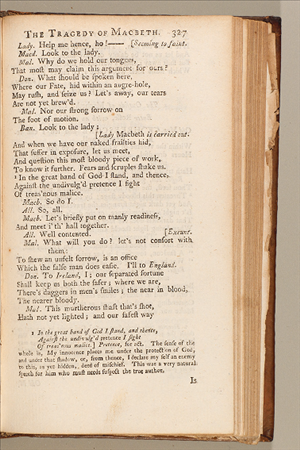 THE TRAGEDY OF MACBETH. 327
Lady. Help me hence, ho!—— [Seeming to faint.
Macd. Look to the lady.
Mal. Why do we hold our tongues,
That most may claim this argument for ours?
Don. What should be spoken here,
Where our Fate, hid within an augre-hole,
May rush, and seize us? Let's away, our tears
Are not yet brew'd.
Mal. Nor our strong sorrow on
The foot of motion.
Ban. Look to the lady;
[Lady Macbeth is carried out.
And when we have our naked frailties hid,
That suffer in exposure, let us meet,
And question this most bloody piece of work,
To know it further. Fears and scruples shake us.
¹ In the great hand of God I stand, and thence,
Against the undivulg'd pretence I fight
Of treas'nous malice.
Macb. So do I.
All. So, all.
Macb. Let's briefly put on manly readiness,
And meet i' th' hall together.
All. Well contented. [Exeunt.
Mal. What will you do? let's not consort with
them:
To shew an unfelt sorrow, is an office
Which the false man does ease. I'll to England.
Don. To Ireland, I; our separated fortune
Shall keep us both the safer; where we are,
There's daggers in men's smiles; the near in blood,
The nearer bloody.
Mal. This murtherous shaft that's shot,
Hath not yet lighted; and our safest way
¹ In the great hand of God I stand, and thence,
Against the undivulg'd pretence I fight
Of treas'nous malice.] Pretence, for act. The sense of the
whole is, My innocence places me under the protection of God,
and under that shadow, or, from thence, I declare my self an enemy
to this, as yet hidden, deed of mischief. This was a very natural
speech for him who must needs suspect the true author.
Is